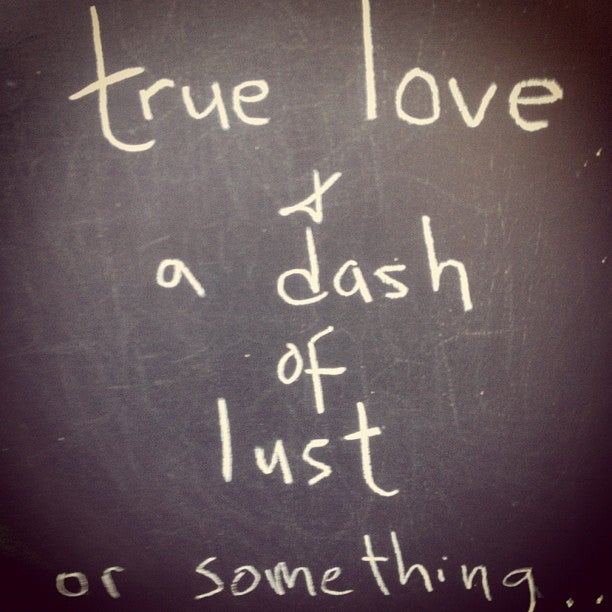 true love
&
a dash
of
lust
or something...